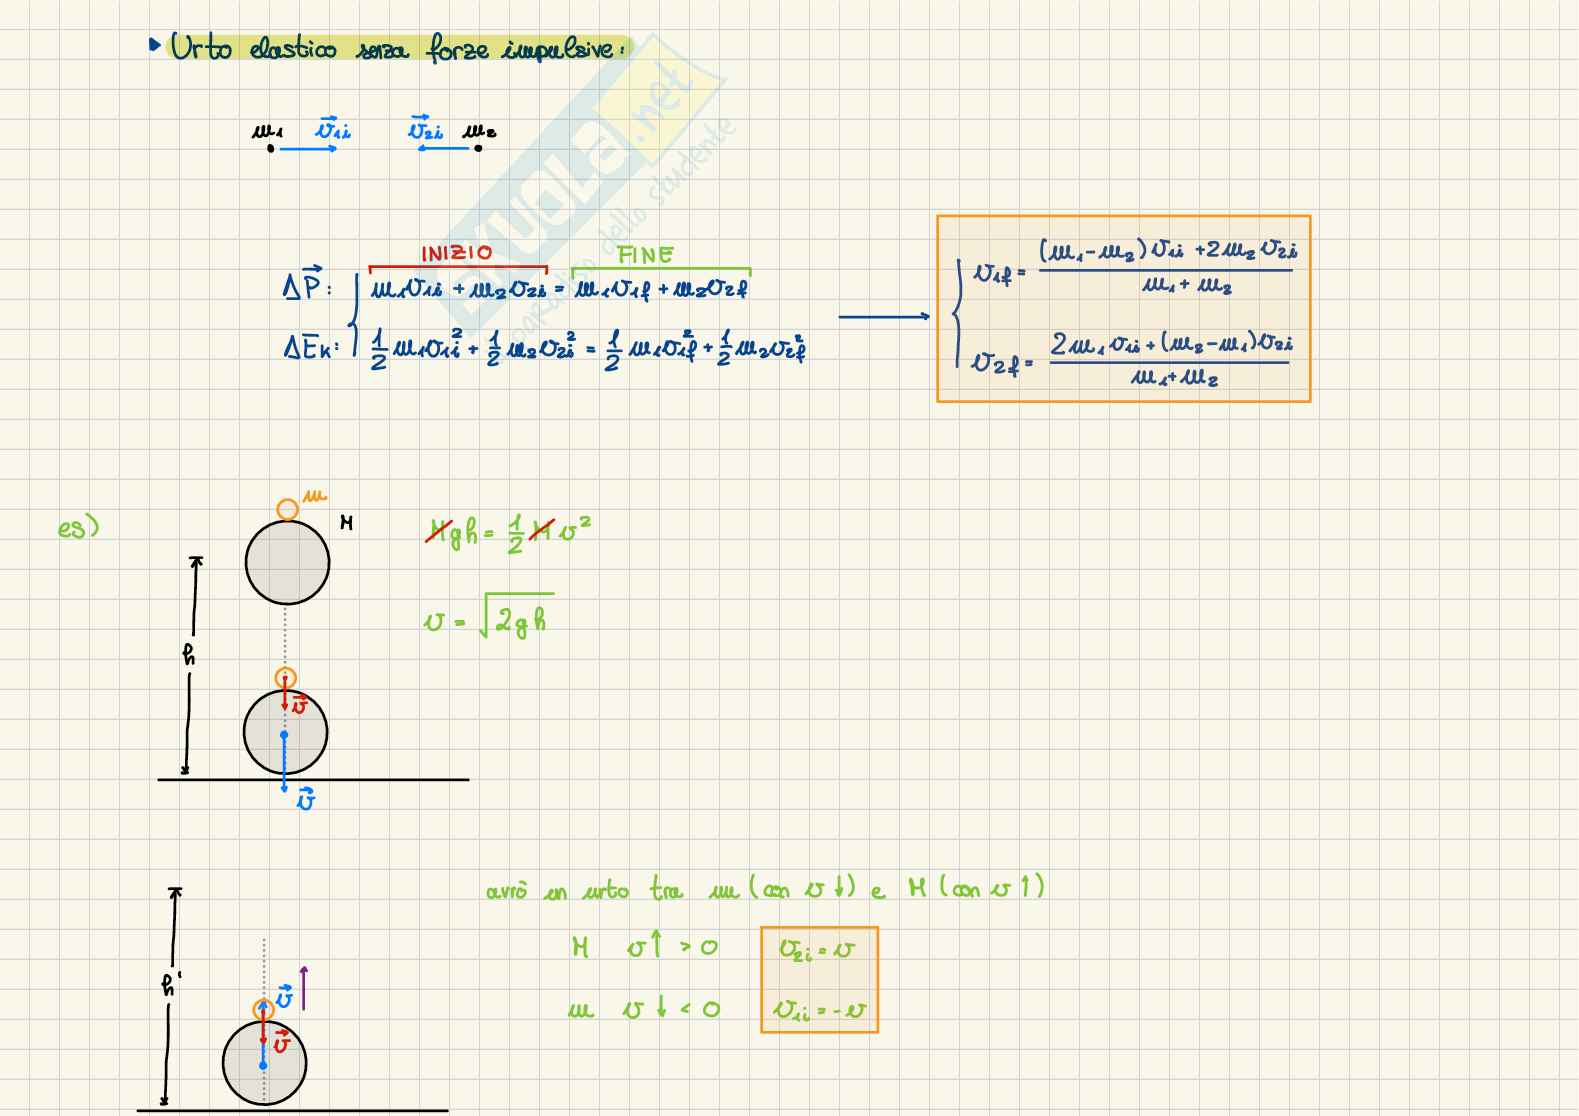 ▸ Urto elastico senza forze impulsive:
m₁ v⃗₁ᵢ v⃗₂ᵢ m₂
INIZIO FINE
ΔP⃗: m₁v₁ᵢ + m₂v₂ᵢ = m₁v₁f + m₂v₂f
ΔEk: 1/2 m₁v₁ᵢ² + 1/2 m₂v₂ᵢ² = 1/2 m₁v₁f² + 1/2 m₂v₂f²
v₁f = ((m₁-m₂)v₁ᵢ + 2m₂v₂ᵢ)/(m₁+m₂)
v₂f = (2m₁v₁ᵢ + (m₂-m₁)v₂ᵢ)/(m₁+m₂)
SKUOLA.net
paradiso dello studente
es)
m
M
Mgh = 1/2 M v²
v = √2gh
h
v⃗
v⃗
avrò un urto tra m (con v ↓) e M (con v ↑)
M v↑ > 0 v₂ᵢ = v
m v↓ < 0 v₁ᵢ = -v
h'
v⃗
v⃗